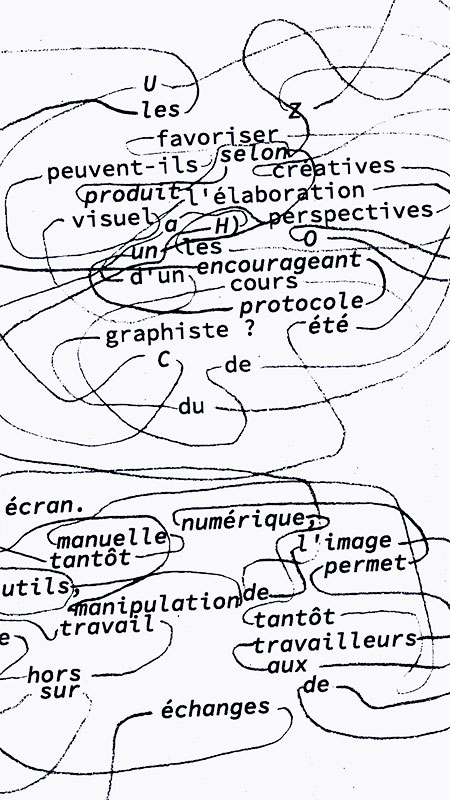 U
les
Z
favoriser
selon
peuvent-ils
créatives
produit
l'élaboration
visuel
a
H)
perspectives
un
les
O
d'un
encourageant
cours
protocole
graphiste ?
été
C
de
du
écran.
numérique,
manuelle
l'image
tantôt
permet
utils,
manipulation
de
travail
tantôt
e
travailleurs
hors
aux
sur
de
échanges